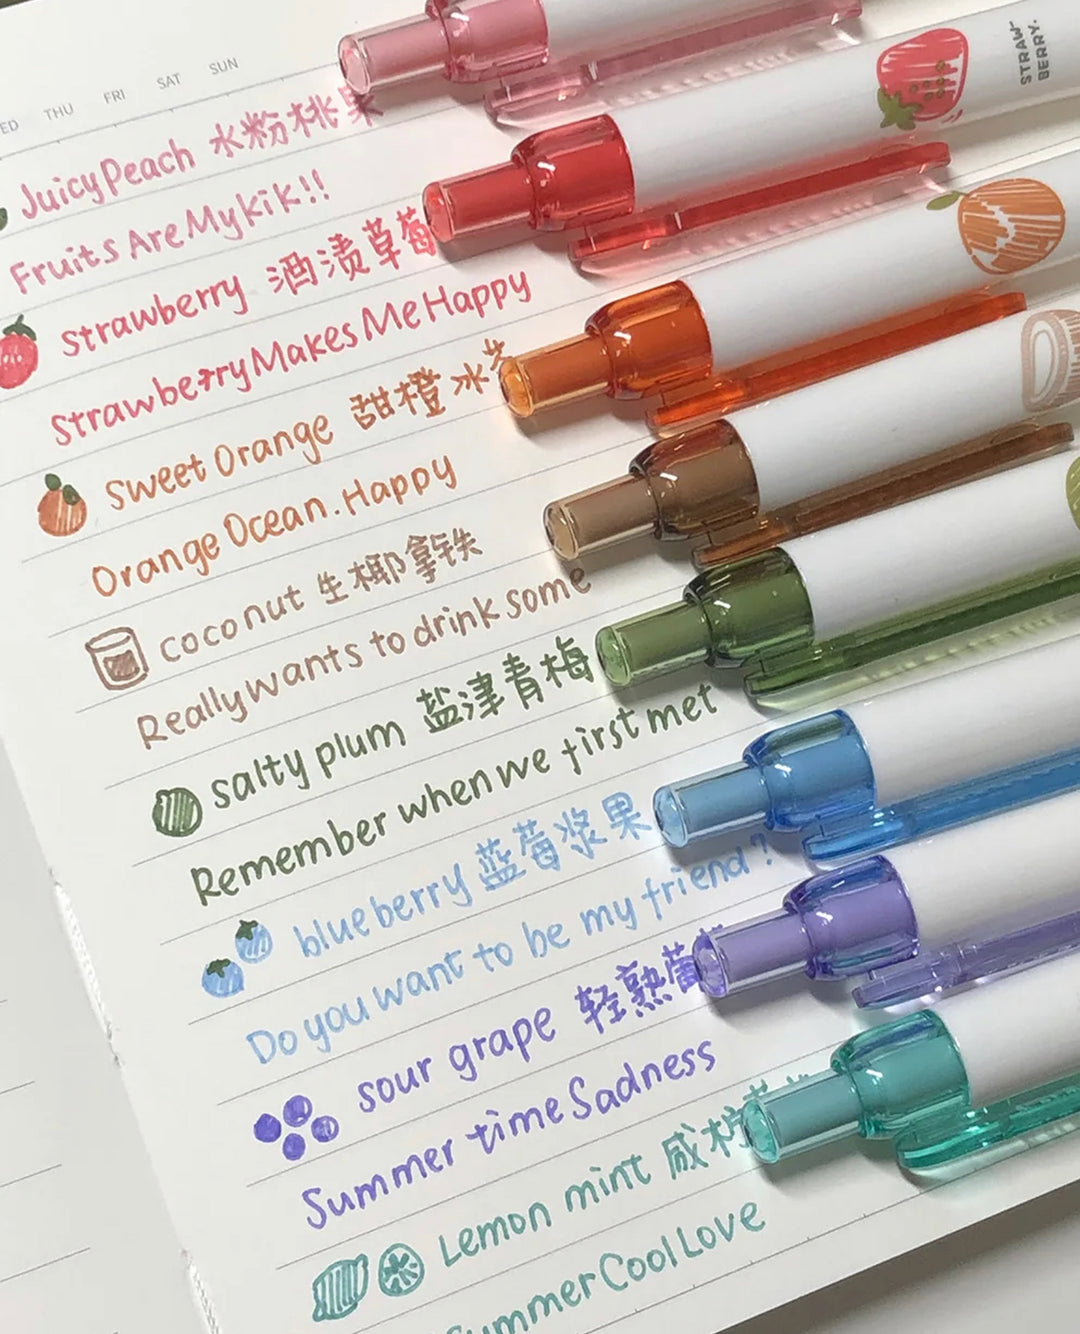 THU FRI SAT SUN
Juicy Peach 水粉桃果
Fruits Are My kik!!
STRAW-
BERRY.
strawberry 酒渍草莓
Strawberry Makes Me Happy
Sweet Orange 甜橙冰
Orange Ocean. Happy
coconut 生椰拿铁
Really wants to drink some
salty plum 盐津青梅
Remember when we first met
blueberry 蓝莓浆果
Do you want to be my friend?
sour grape 轻熟
Summer time Sadness
Lemon mint 咸柠
Summer Cool Love